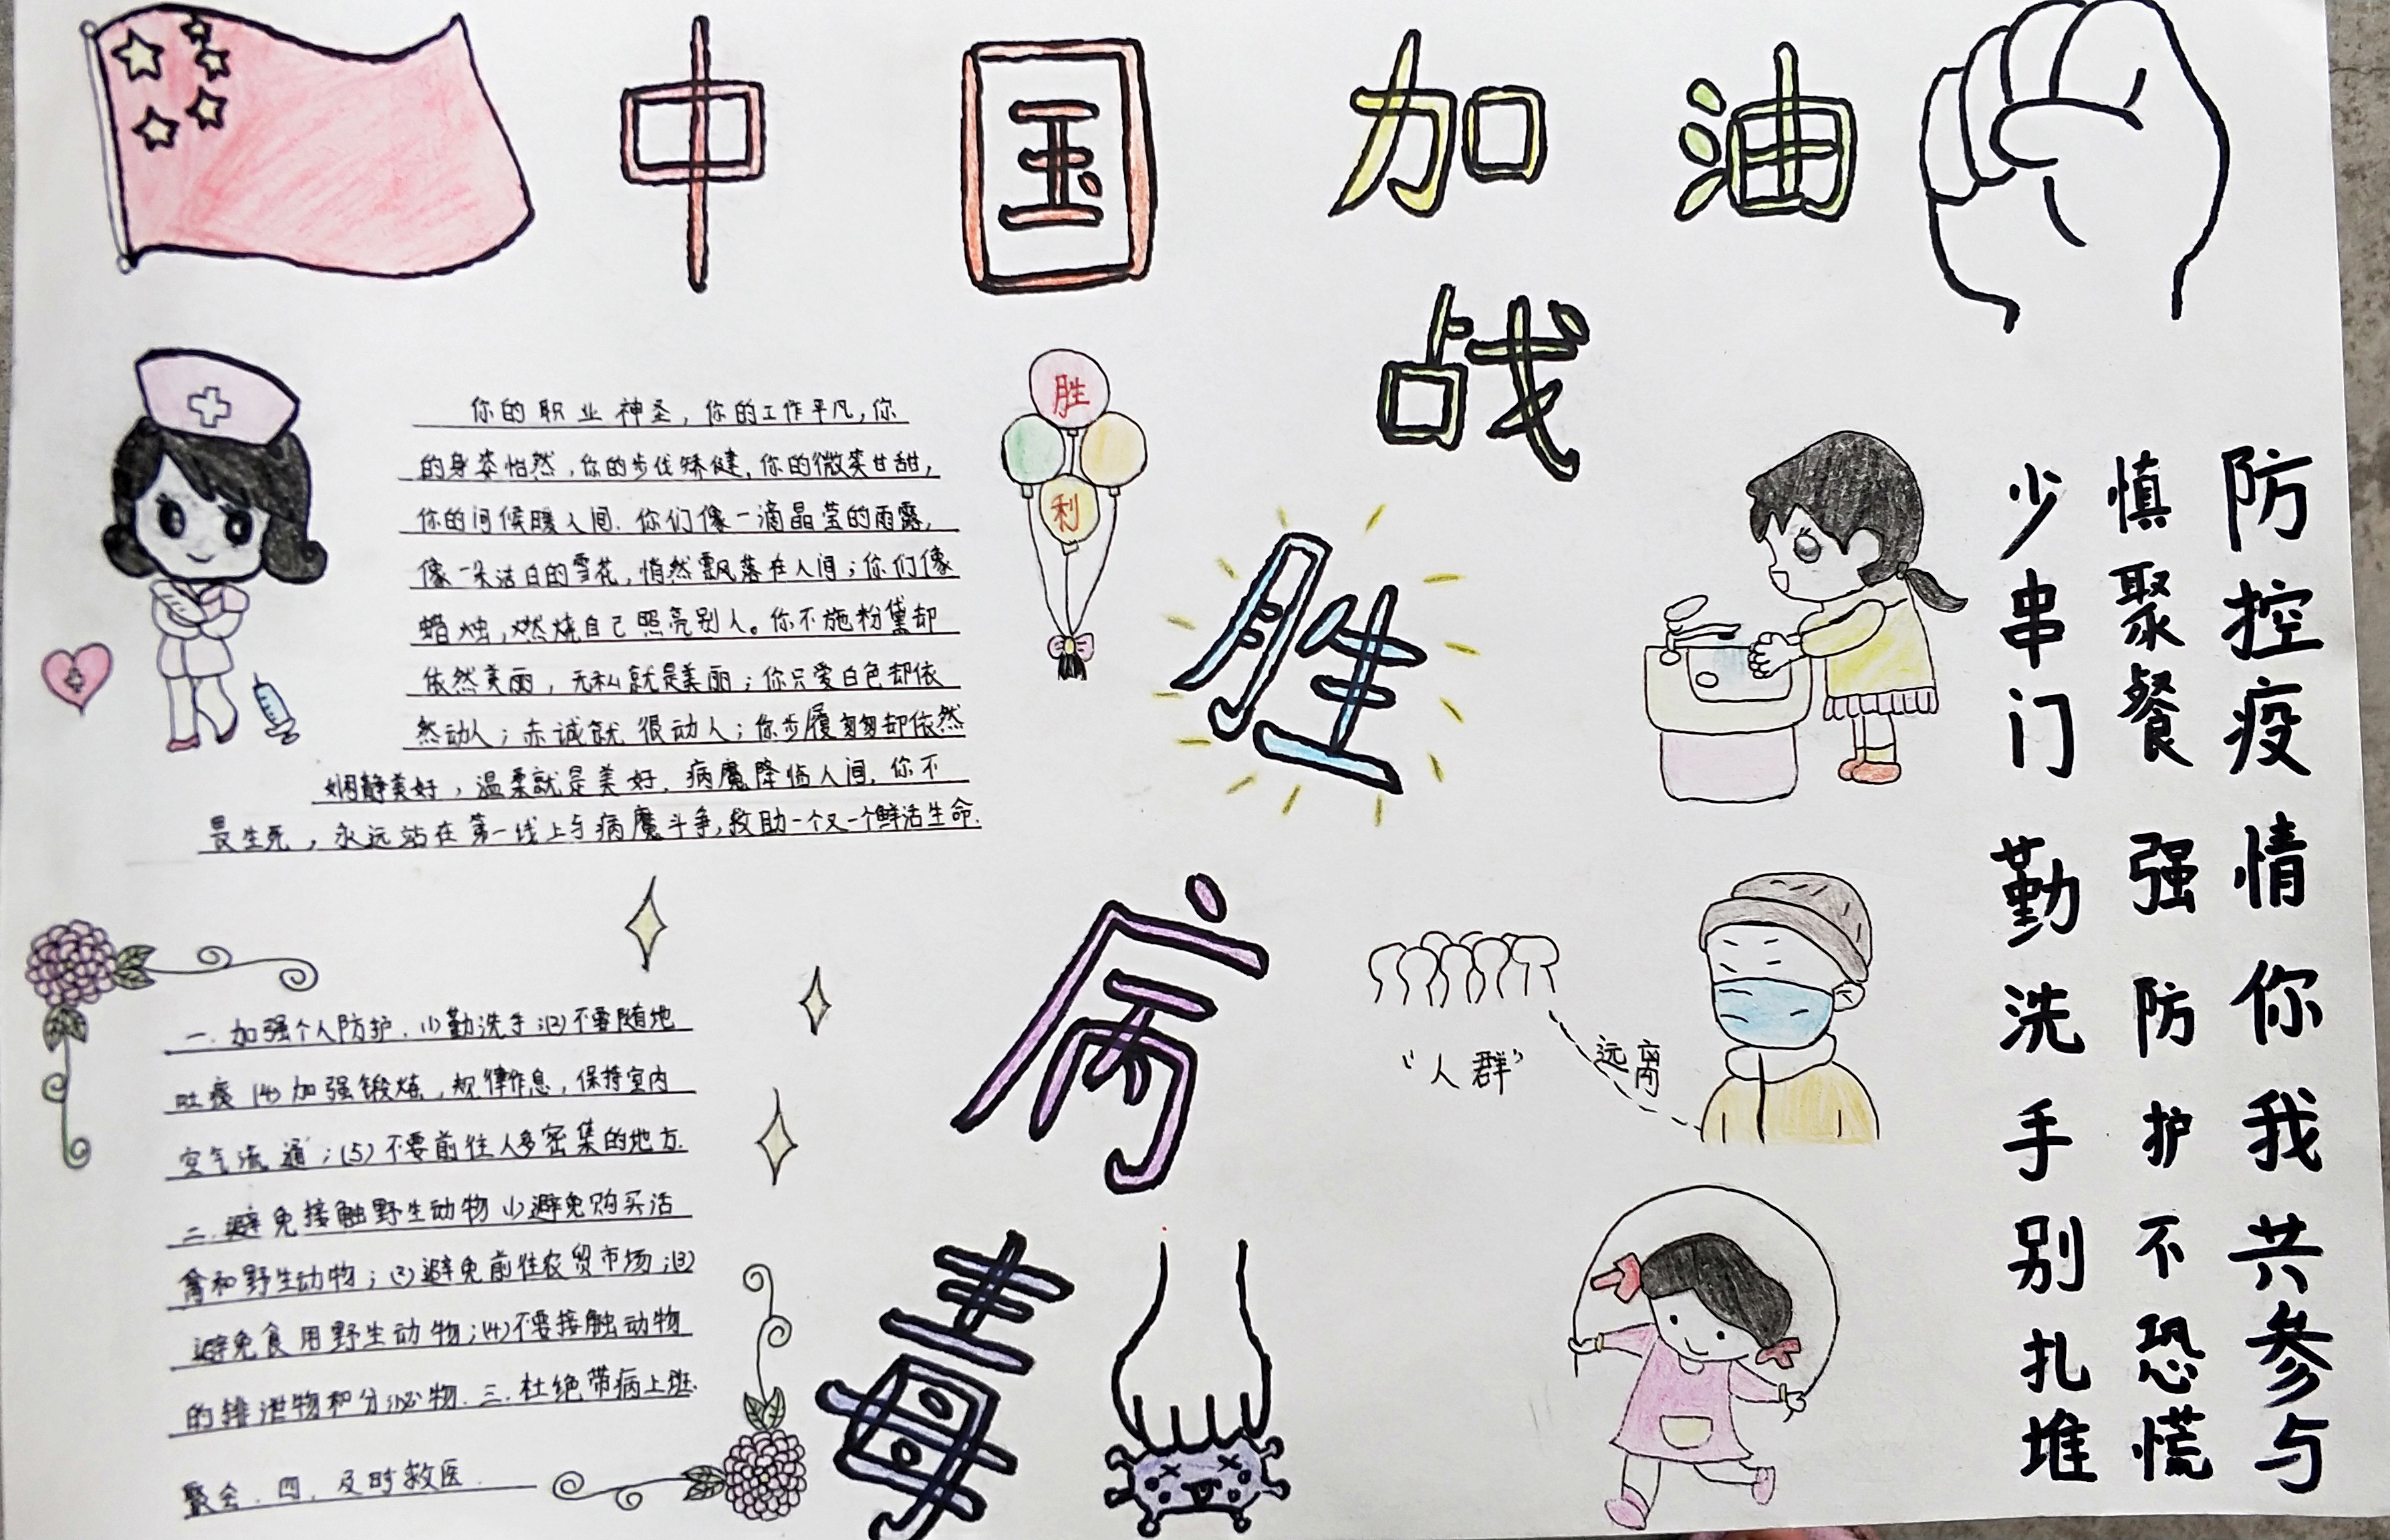 中国加油
战胜病毒
胜利
你的职业神圣，你的工作平凡，你
的身姿怡然，你的步伐矫健，你的微笑甘甜，
你的问候暖人间．你们像一滴晶莹的雨露，
像一朵洁白的雪花，悄然飘落在人间；你们像
蜡烛，燃烧自己照亮别人。你不施粉黛却
依然美丽，无私就是美丽；你只爱白色却依
然动人；赤诚就很动人；你步履匆匆却依然
娴静美好，温柔就是美好．病魔降临人间．你不
畏生死，永远站在第一线上与病魔斗争，救助一个又一个鲜活生命．
一．加强个人防护．(1)勤洗手；(2)不要随地
吐痰(4)加强锻炼，规律作息，保持室内
空气流通；(5)不要前往人多密集的地方．
二．避免接触野生动物(1)避免购买活
禽和野生动物；(2)避免前往农贸市场；(3)
避免食用野生动物；(4)不要接触动物
的排泄物和分泌物．三．杜绝带病上班．
聚会．四．及时救医．
“人群”
远离
防控疫情你我共参与
慎聚餐强防护不恐慌
少串门勤洗手别扎堆